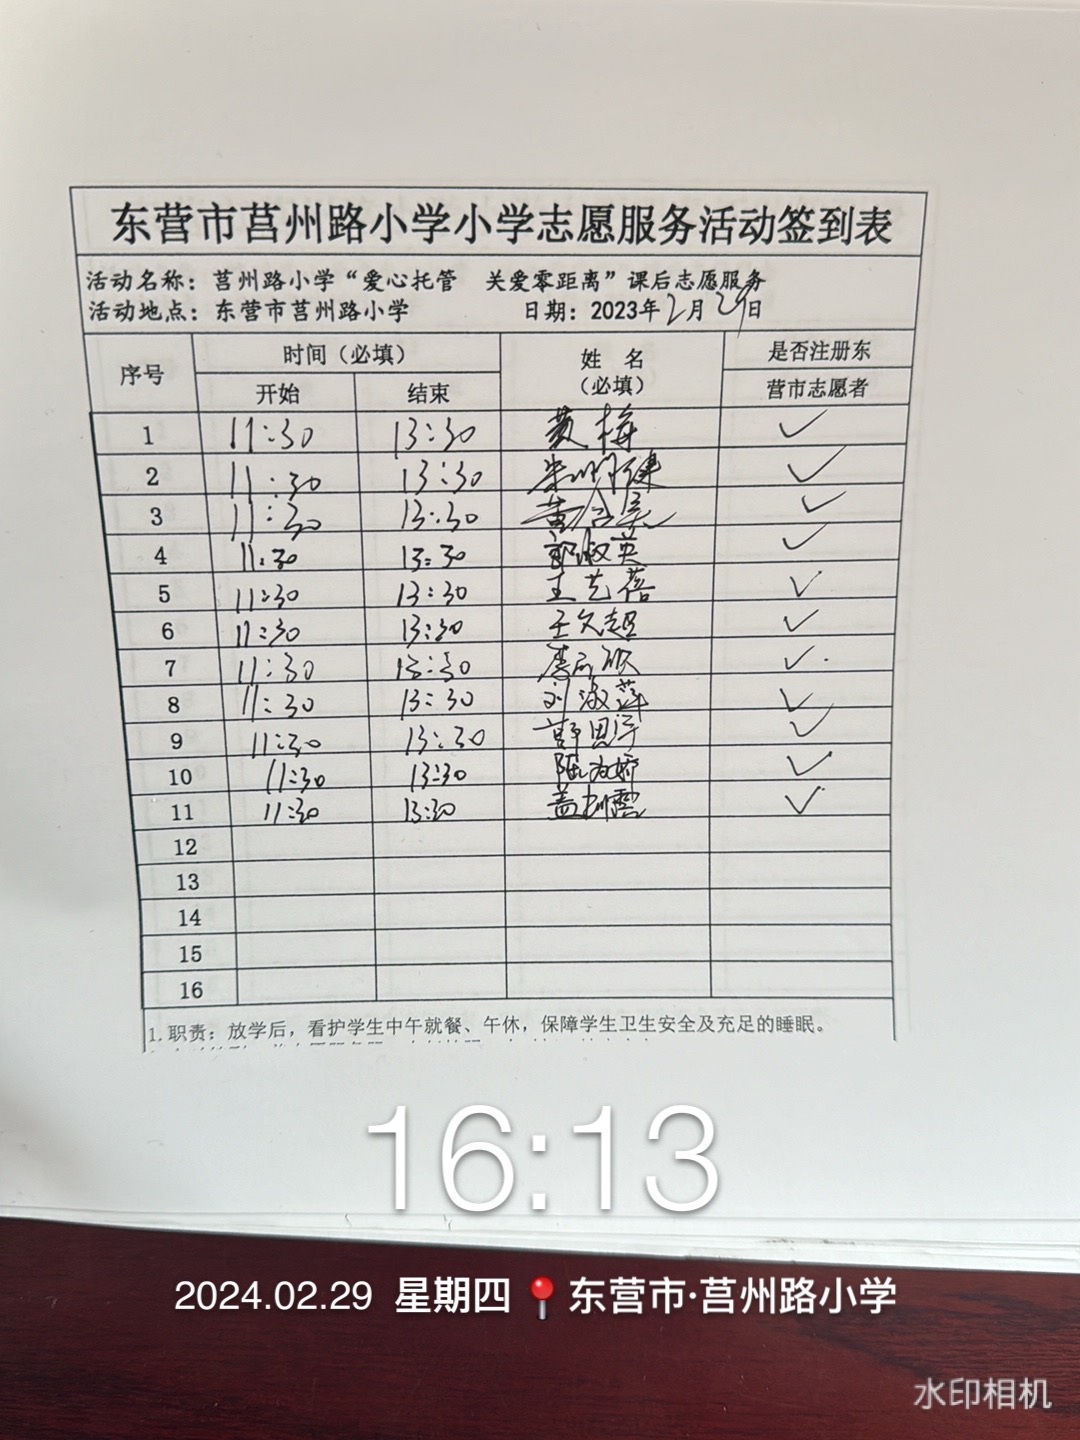 东营市莒州路小学小学志愿服务活动签到表
活动名称：莒州路小学“爱心托管 关爱零距离”课后志愿服务
活动地点：东营市莒州路小学 日期：2023年2月29日
序号 时间（必填） 姓 名（必填） 是否注册东营市志愿者
开始 结束
1 11:30 13:30 黄梅 ✓
2 11:30 13:30 ✓
3 11:30 13:30 ✓
4 11:30 13:30 郭淑英 ✓
5 11:30 13:30 王艺蓓 ✓
6 11:30 13:30 王文超 ✓
7 11:30 13:30 ✓
8 11:30 13:30 刘淑萍 ✓
9 11:30 13:30 ✓
10 11:30 13:30 ✓
11 11:30 13:30 ✓
12
13
14
15
16
1.职责：放学后，看护学生中午就餐、午休，保障学生卫生安全及充足的睡眠。
16:13
2024.02.29 星期四 东营市·莒州路小学
水印相机